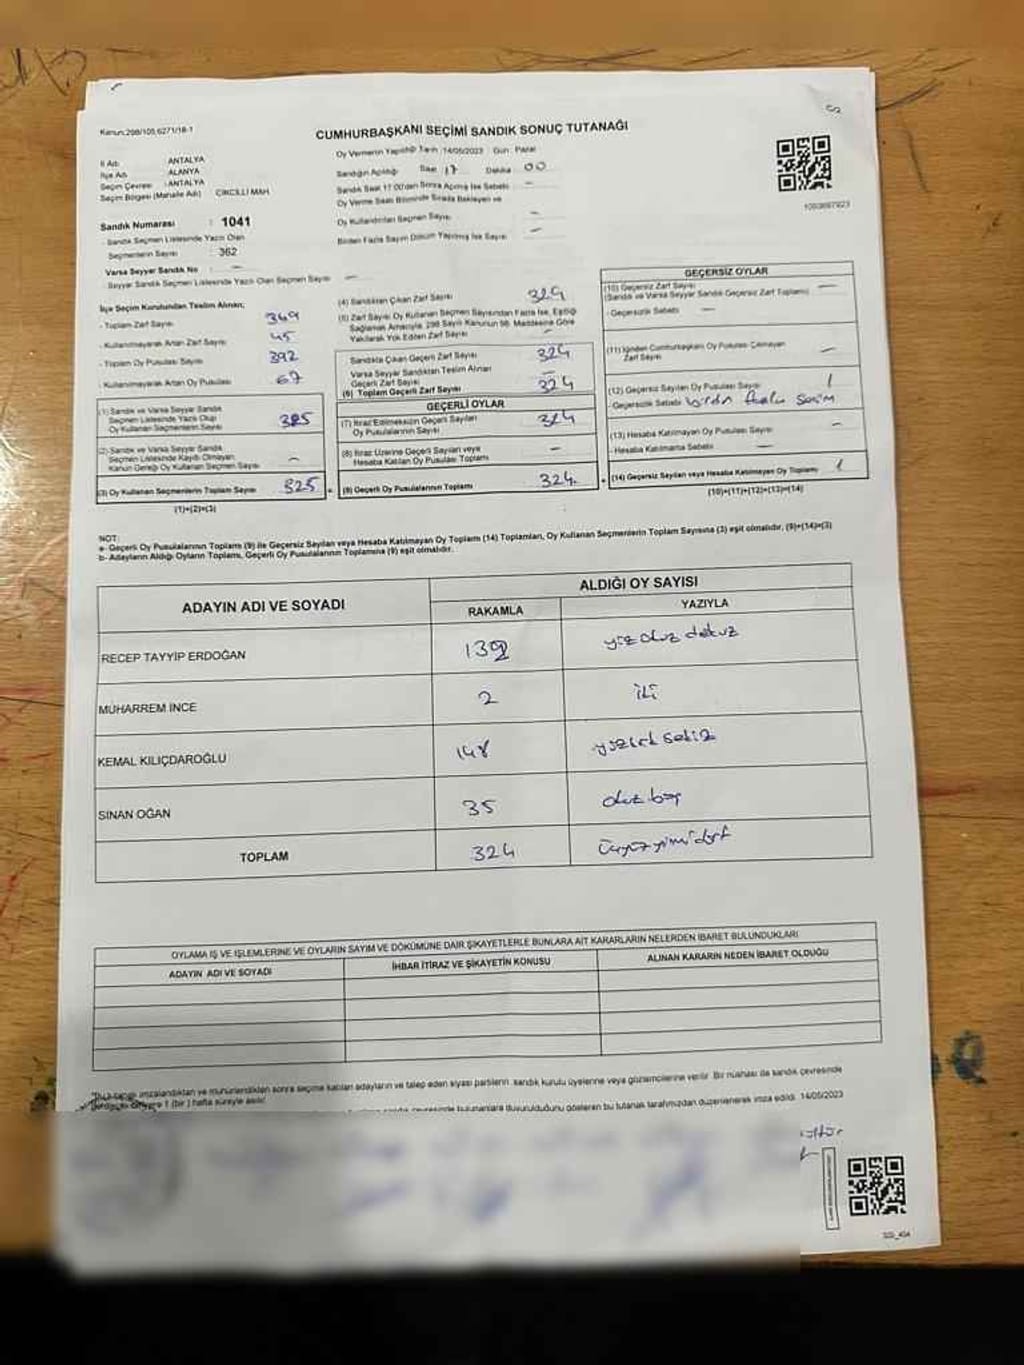 Kanun:298/105,6271/18-1
CUMHURBAŞKANI SEÇİMİ SANDIK SONUÇ TUTANAĞI
İl Adı: ANTALYA
İlçe Adı: ALANYA
Seçim Çevresi: ANTALYA
Seçim Bölgesi (Mahalle Adı) CİKCİLLİ MAH.
Sandık Numarası : 1041
- Sandık Seçmen Listesinde Yazılı Olan
Seçmenlerin Sayısı : 362
Varsa Seyyar Sandık No : —
- Seyyar Sandık Seçmen Listesinde Yazılı Olan Seçmen Sayısı —
Oy Vermenin Yapıldığı Tarih :14/05/2023 Gün : Pazar
Sandığın Açıldığı Saat 17 Dakika 00
Sandık Saat 17.00'den Sonra Açılmış İse Sebebi —
Oy Verme Saati Bitiminde Sırada Bekleyen ve
Oy Kullandırılan Seçmen Sayısı —
Birden Fazla Sayım Döküm Yapılmış İse Sayısı —
İlçe Seçim Kurulundan Teslim Alınan;
- Toplam Zarf Sayısı 369
- Kullanılmayarak Artan Zarf Sayısı 45
- Toplam Oy Pusulası Sayısı 392
- Kullanılmayarak Artan Oy Pusulası 67
(1) Sandık ve Varsa Seyyar Sandık
Seçmen Listesinde Yazılı Olup
Oy Kullanan Seçmenlerin Sayısı 325
(2) Sandık ve Varsa Seyyar Sandık
Seçmen Listesinde Kayıtlı Olmayan
Kanun Gereği Oy Kullanan Seçmen Sayısı —
(3) Oy Kullanan Seçmenlerin Toplam Sayısı 325
(1)+(2)=(3)
(4) Sandıktan Çıkan Zarf Sayısı 324
(5) Zarf Sayısı Oy Kullanan Seçmen Sayısından Fazla İse, Eşitliği
Sağlamak Amacıyla, 298 Sayılı Kanunun 98. Maddesine Göre
Yakılarak Yok Edilen Zarf Sayısı —
Sandıkta Çıkan Geçerli Zarf Sayısı 324
Varsa Seyyar Sandıktan Teslim Alınan
Geçerli Zarf Sayısı —
(6) Toplam Geçerli Zarf Sayısı 324
GEÇERLİ OYLAR
(7) İtiraz Edilmeksizin Geçerli Sayılan
Oy Pusulalarının Sayısı 324
(8) İtiraz Üzerine Geçerli Sayılan veya
Hesaba Katılan Oy Pusulası Toplamı —
(9) Geçerli Oy Pusulalarının Toplamı 324
GEÇERSİZ OYLAR
(10) Geçersiz Zarf Sayısı —
(Sandık ve Varsa Seyyar Sandık Geçersiz Zarf Toplamı)
- Geçersizlik Sebebi —
(11) İçinden Cumhurbaşkanı Oy Pusulası Çıkmayan
Zarf Sayısı —
(12) Geçersiz Sayılan Oy Pusulası Sayısı 1
- Geçersizlik Sebebi birden fazla seçim
(13) Hesaba Katılmayan Oy Pusulası Sayısı —
- Hesaba Katılmama Sebebi —
(14) Geçersiz Sayılan veya Hesaba Katılmayan Oy Toplamı 1
(10)+(11)+(12)+(13)=(14)
NOT:
a- Geçerli Oy Pusulalarının Toplamı (9) ile Geçersiz Sayılan veya Hesaba Katılmayan Oy Toplamı (14) Toplamları, Oy Kullanan Seçmenlerin Toplam Sayısına (3) eşit olmalıdır, (9)+(14)=(3)
b- Adayların Aldığı Oyların Toplamı, Geçerli Oy Pusulalarının Toplamına (9) eşit olmalıdır.
ADAYIN ADI VE SOYADI
ALDIĞI OY SAYISI
RAKAMLA YAZIYLA
RECEP TAYYİP ERDOĞAN 139 yüz otuz dokuz
MUHARREM İNCE 2 iki
KEMAL KILIÇDAROĞLU 148 yüzkırk sekiz
SİNAN OĞAN 35 otuz beş
TOPLAM 324 üçyüzyirmidört
OYLAMA İŞ VE İŞLEMLERİNE VE OYLARIN SAYIM VE DÖKÜMÜNE DAİR ŞİKAYETLERLE BUNLARA AİT KARARLARIN NELERDEN İBARET BULUNDUKLARI
ADAYIN ADI VE SOYADI İHBAR İTİRAZ VE ŞİKAYETİN KONUSU ALINAN KARARIN NEDEN İBARET OLDUĞU
imzalandıktan ve mühürlendikten sonra seçime katılan adayların ve talep eden siyasi partilerin sandık kurulu üyelerine veya gözlemcilerine verilir. Bir nüshası da sandık çevresinde
1 (bir) hafta süreyle asılır.
çevresinde bulunanlara duyurulduğunu gösteren bu tutanak tarafımızdan düzenlenerek imza edildi. 14/05/2023